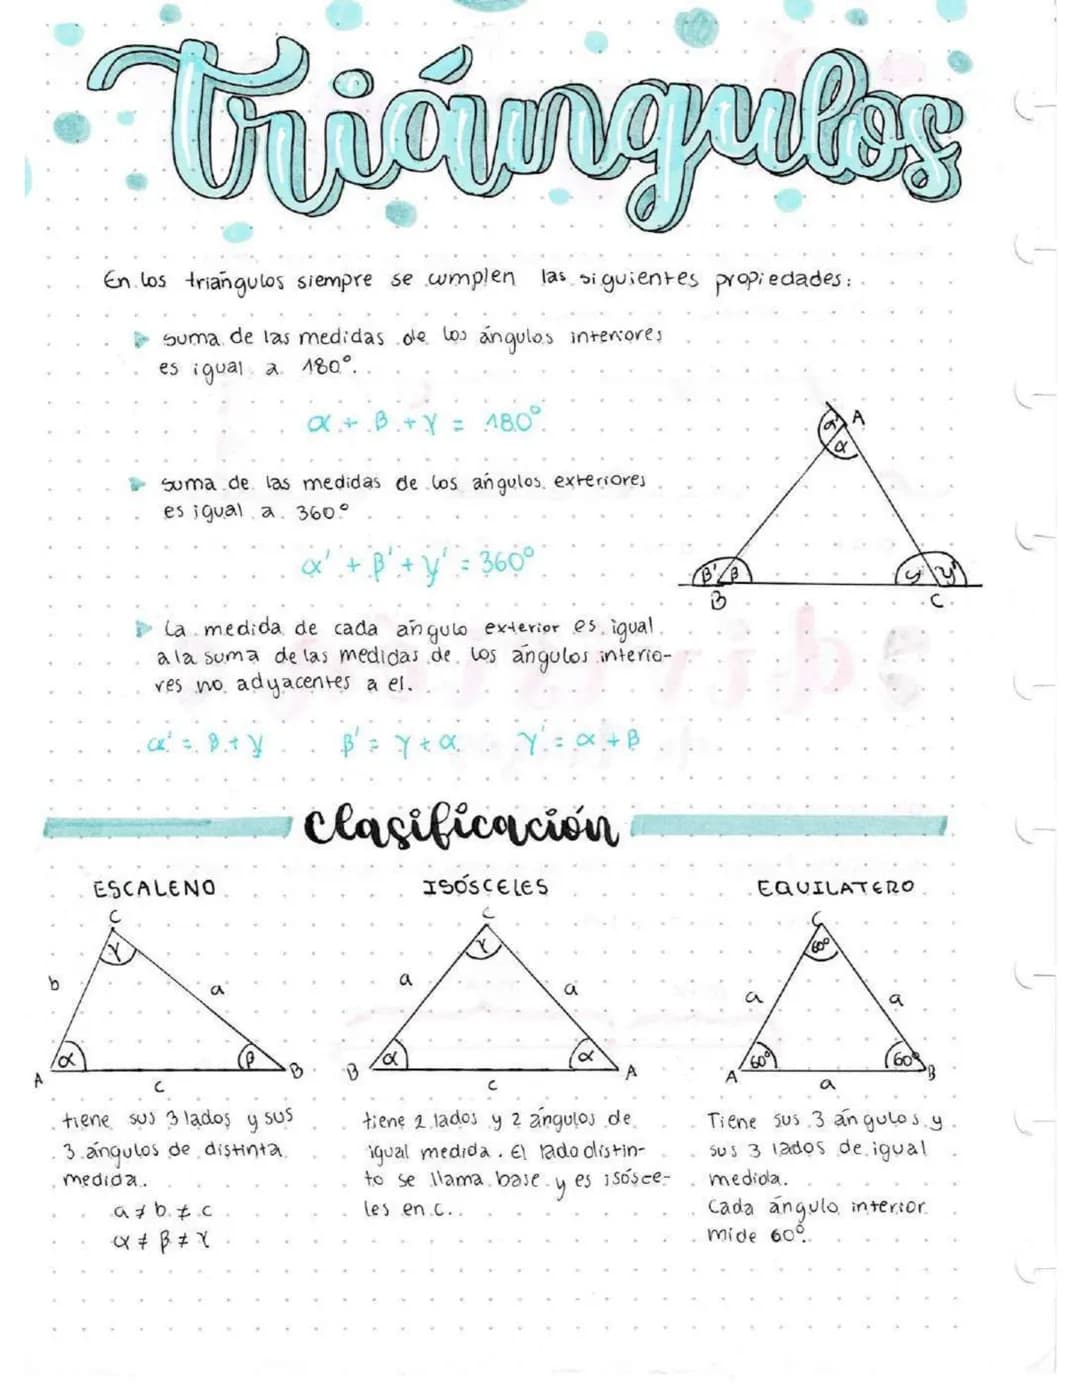 Triángulos
En los triángulos siempre se cumplen las siguientes propiedades:
suma de las medidas de los ángulos interiores
es igual a 180°.
α + β + γ = 180°
suma de las medidas de los ángulos exteriores
es igual a 360°
α' + β' + γ' = 360°
α' A
α
β' β γ γ'
B C
La medida de cada ángulo exterior es igual
a la suma de las medidas de los ángulos interio-
res no adyacentes a el.
α' = β + γ β' = γ + α γ' = α + β
Clasificación
ESCALENO ISÓSCELES EQUILATERO
C C C
γ γ 60°
b a a a a a
α β α α 60° 60°
A B B A A B
c c a
tiene sus 3 lados y sus
3 ángulos de distinta
medida.
a ≠ b ≠ c
α ≠ β ≠ γ
tiene 2 lados y 2 ángulos de
igual medida. El lado distin-
to se llama base y es isósce-
les en c.
Tiene sus 3 ángulos y
sus 3 lados de igual
medida.
Cada ángulo interior
mide 60°.